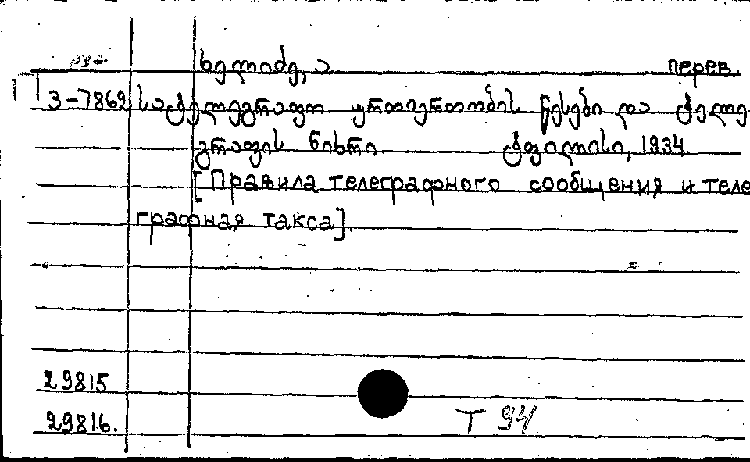 ხელიძე, ა перев.
3-7862 სატელეგრაფო ურთიერთობის წესები და ტელე
გრაფის ნიხრი ტფილისი, 1934
[Правила телеграфного сообщения и теле
графная такса].
29815
29816. Т 94